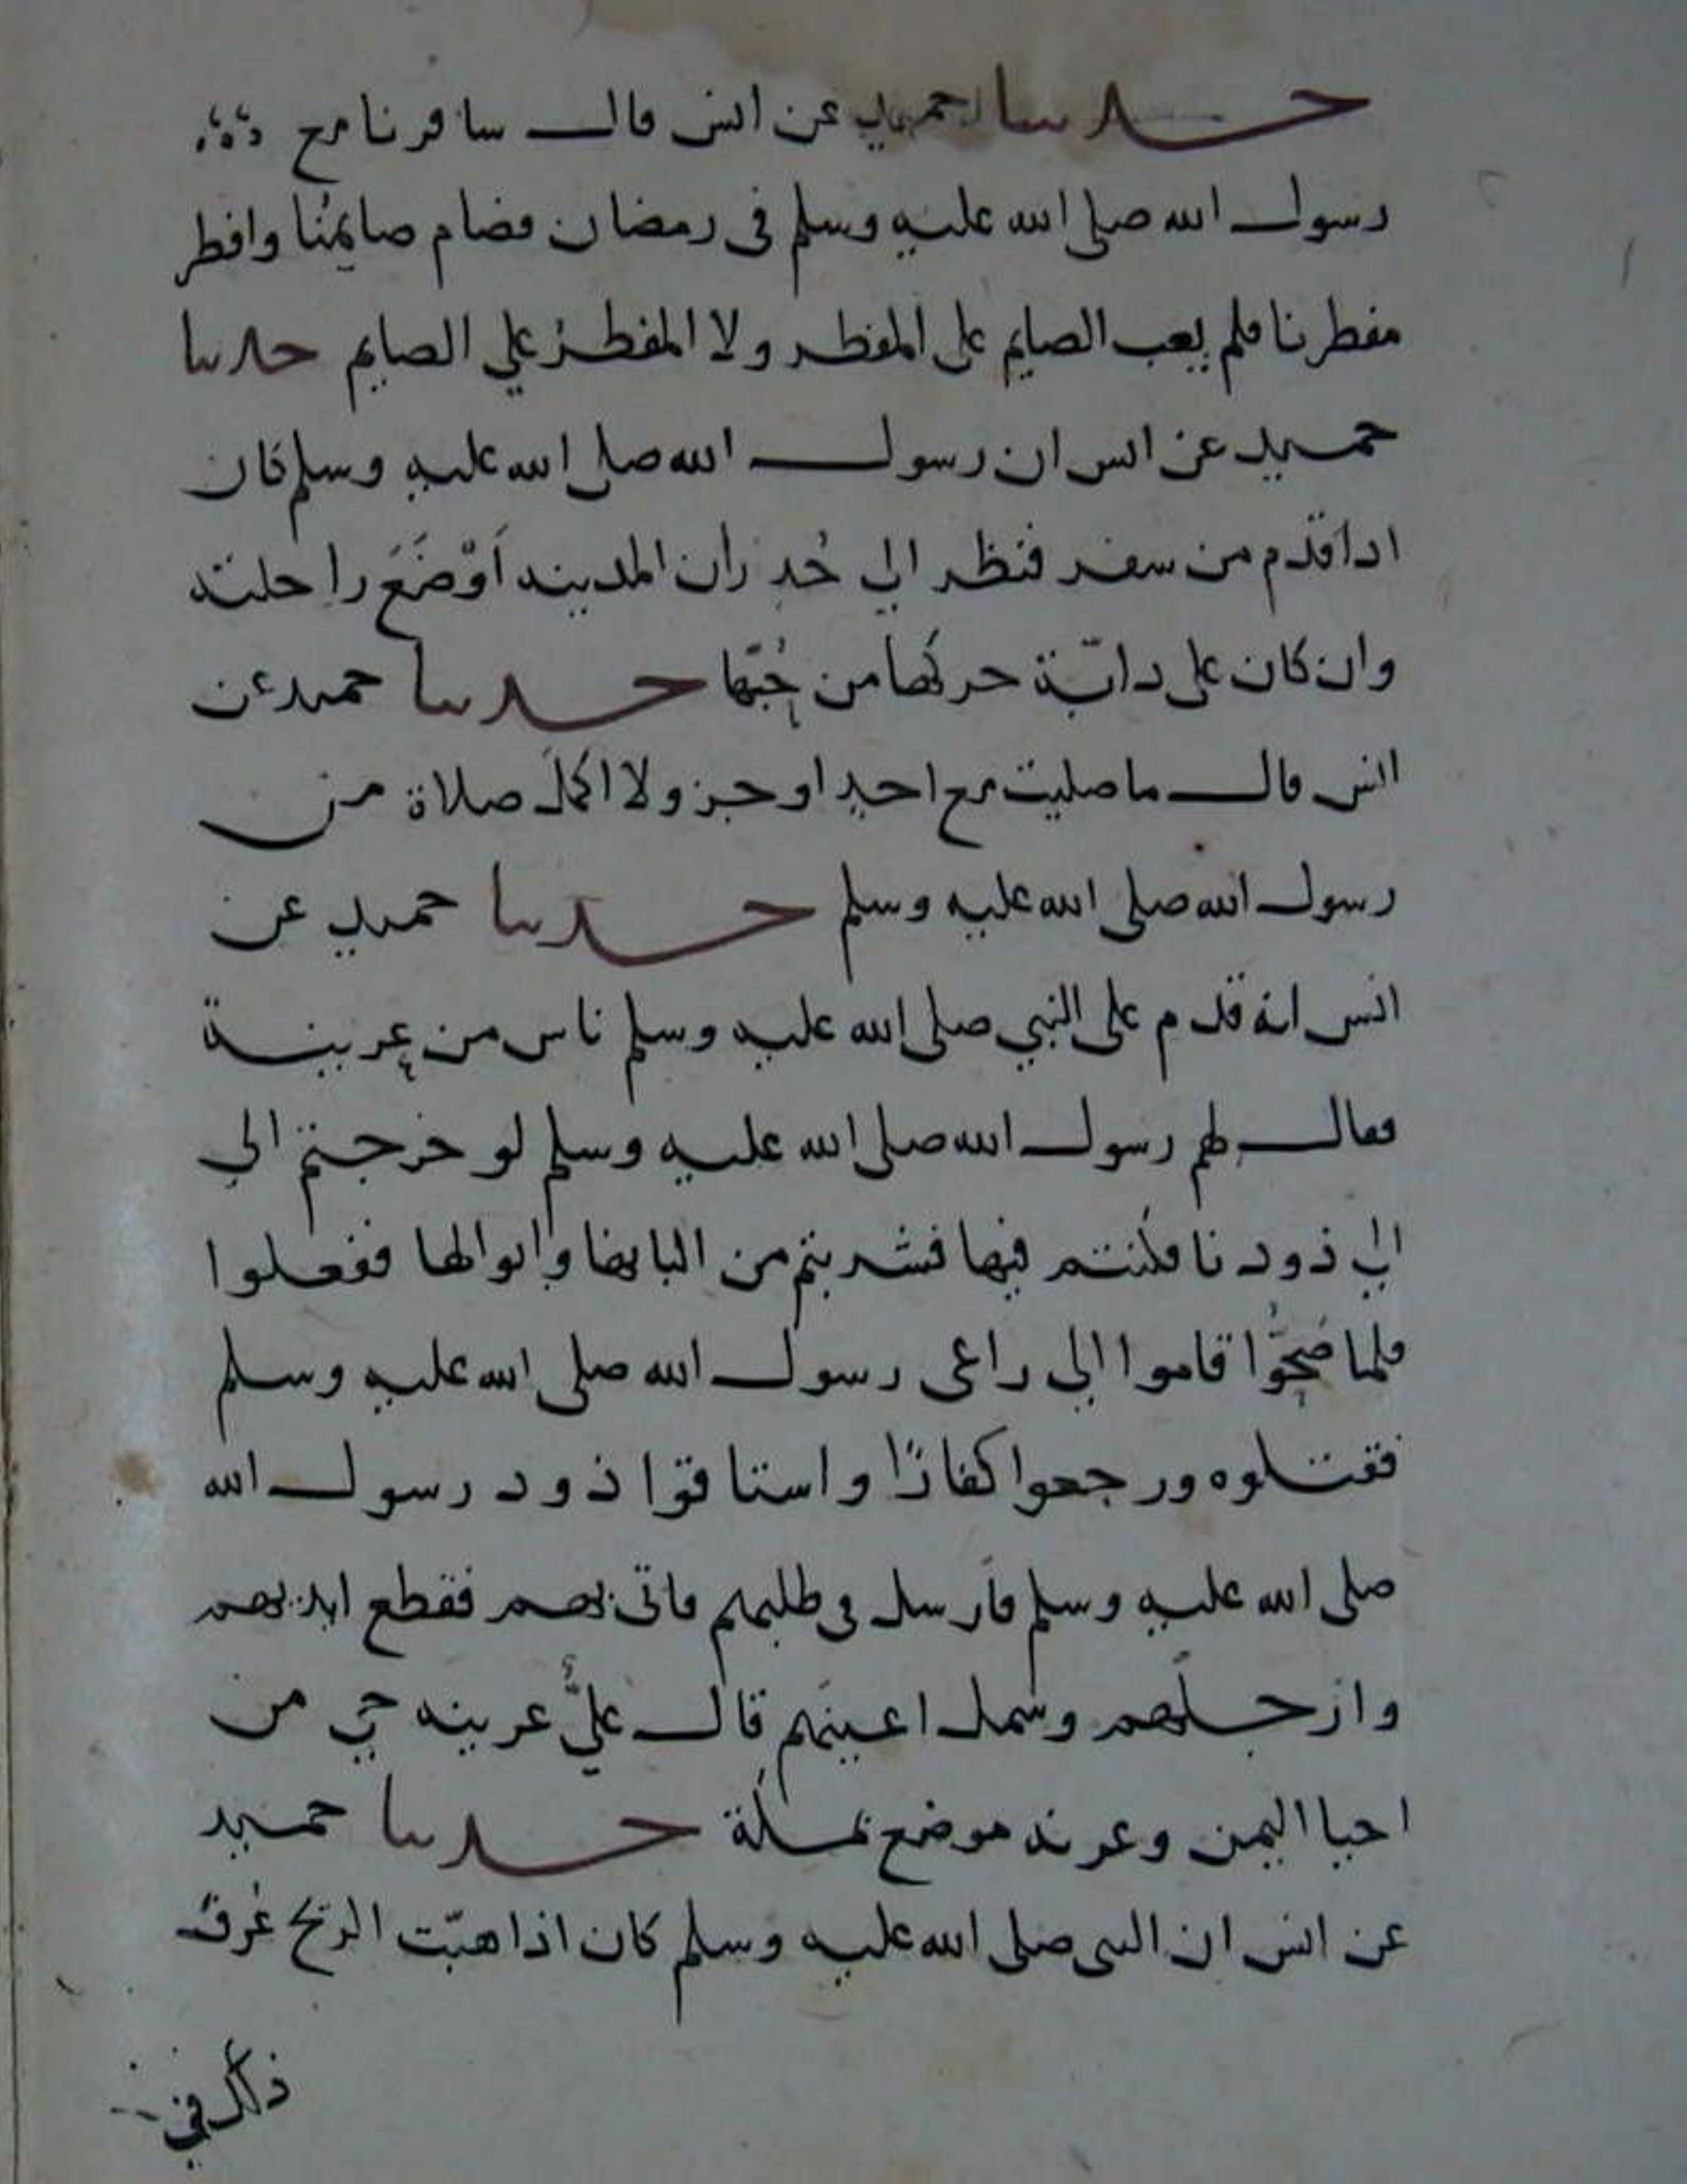 حدثنا حميد عن انس قال سافرنا مع
رسول الله صلى الله عليه وسلم فى رمضان فصام صايمُنا وافطر
مفطرنا فلم يعب الصايم على المفطر ولا المفطرُ علي الصايم حدثنا
حميد عن انس ان رسول الله صلى الله عليه وسلم كان
اذا قدم من سفر فنظر الي جُدرات المدينه اَوْضَعَ راحلته
وان كان على دابّة حركها من حُبّها حدثنا حميد عن
انس قال ما صليت مع احدٍ اوجز ولا اكملَ صلاة من
رسول الله صلى الله عليه وسلم حدثنا حميد عن
انس انه قدم على النبي صلى الله عليه وسلم ناس من عرينة
فقال لهم رسول الله صلى الله عليه وسلم لو خرجتم الي
الي ذود نا فكنتم فيها فشربتم من البانها وابوالها ففعلوا
فلما صَحُّوا قاموا الي راعى رسول الله صلى الله عليه وسلم
فقتلوه ورجعوا كفارًا واستاقوا ذود رسول الله
صلى الله عليه وسلم فارسل في طلبهم فاتى بهم فقطع ايديهم
وارجلَهم وسمل اعينَهم قال عليٌّ عرينه حي من
احيا اليمن وعرنه موضع بمكة حدثنا حميد
عن انس ان النبى صلى الله عليه وسلم كان اذا هبّت الريح عُرف
ذلك في